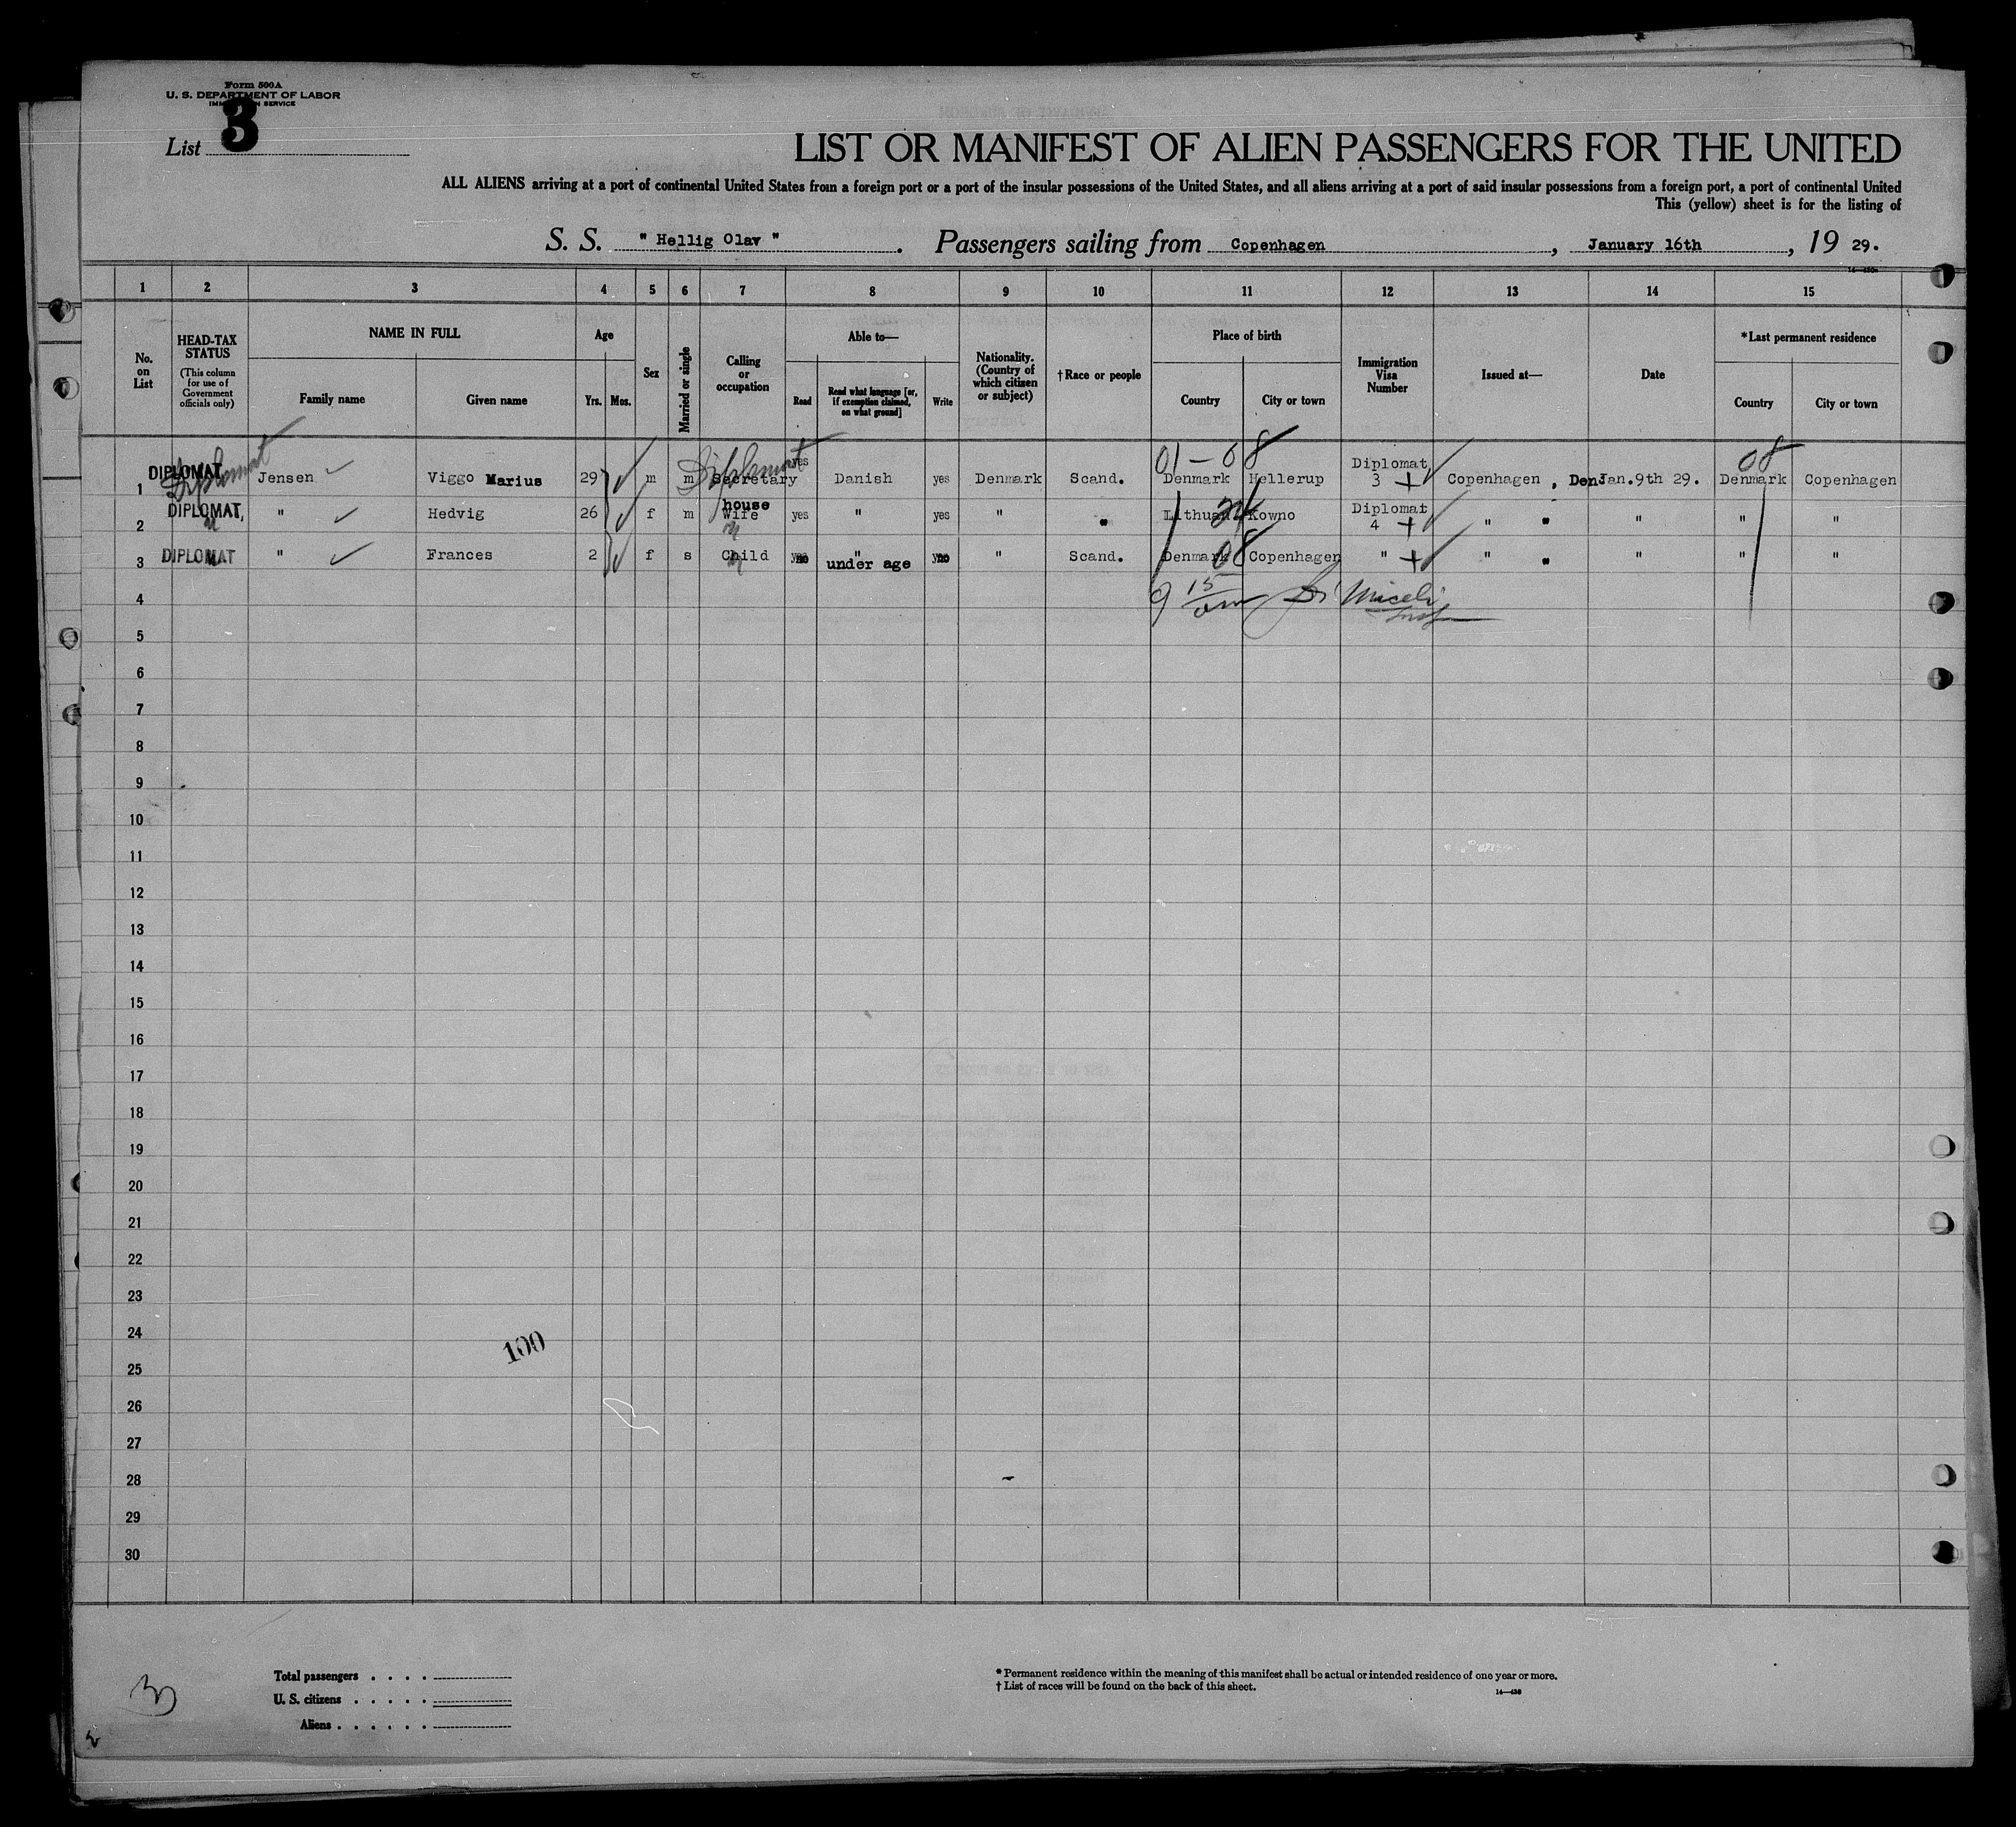 Form 500A
U. S. DEPARTMENT OF LABOR
IMMIGRATION SERVICE
List 3
LIST OR MANIFEST OF ALIEN PASSENGERS FOR THE UNITED
ALL ALIENS arriving at a port of continental United States from a foreign port or a port of the insular possessions of the United States, and all aliens arriving at a port of said insular possessions from a foreign port, a port of continental United
This (yellow) sheet is for the listing of
S. S. " Hellig Olav " . Passengers sailing from Copenhagen , January 16th , 19 29.
1 2 3 4 5 6 7 8 9 10 11 12 13 14 15
No. on List
HEAD-TAX STATUS (This column for use of Government officials only)
NAME IN FULL
Family name Given name
Age
Yrs. Mos.
Sex
Married or single
Calling or occupation
Able to—
Read Read what language [or, if exemption claimed, on what ground] Write
Nationality. (Country of which citizen or subject)
†Race or people
Place of birth
Country City or town
Immigration Visa Number
Issued at—
Date
*Last permanent residence
Country City or town
Diplomat Diplomat 01 - 08 08
1 DIPLOMAT Jensen Viggo Marius 29 m m Secretary yes Danish yes Denmark Scand. Denmark Hellerup Diplomat 3 + Copenhagen , Den Jan.9th 29. Denmark Copenhagen
2 DIPLOMAT, " Hedvig 26 f m house Wife yes " yes " " Lithuan 24 Kowno Diplomat 4 + " " " " "
3 DIPLOMAT " Frances 2 f s Child no " under age no " Scand. Denmark 08 Copenhagen " + " " " " "
4 9 15 am Miceli Insp
5
6
7
8
9
10
11
12
13
14
15
16
17
18
19
20
21
22
23
24
100
25
26
27
28
29
30
3
Total passengers . . . .
U. S. citizens . . . . .
Aliens . . . . . .
* Permanent residence within the meaning of this manifest shall be actual or intended residence of one year or more.
† List of races will be found on the back of this sheet.